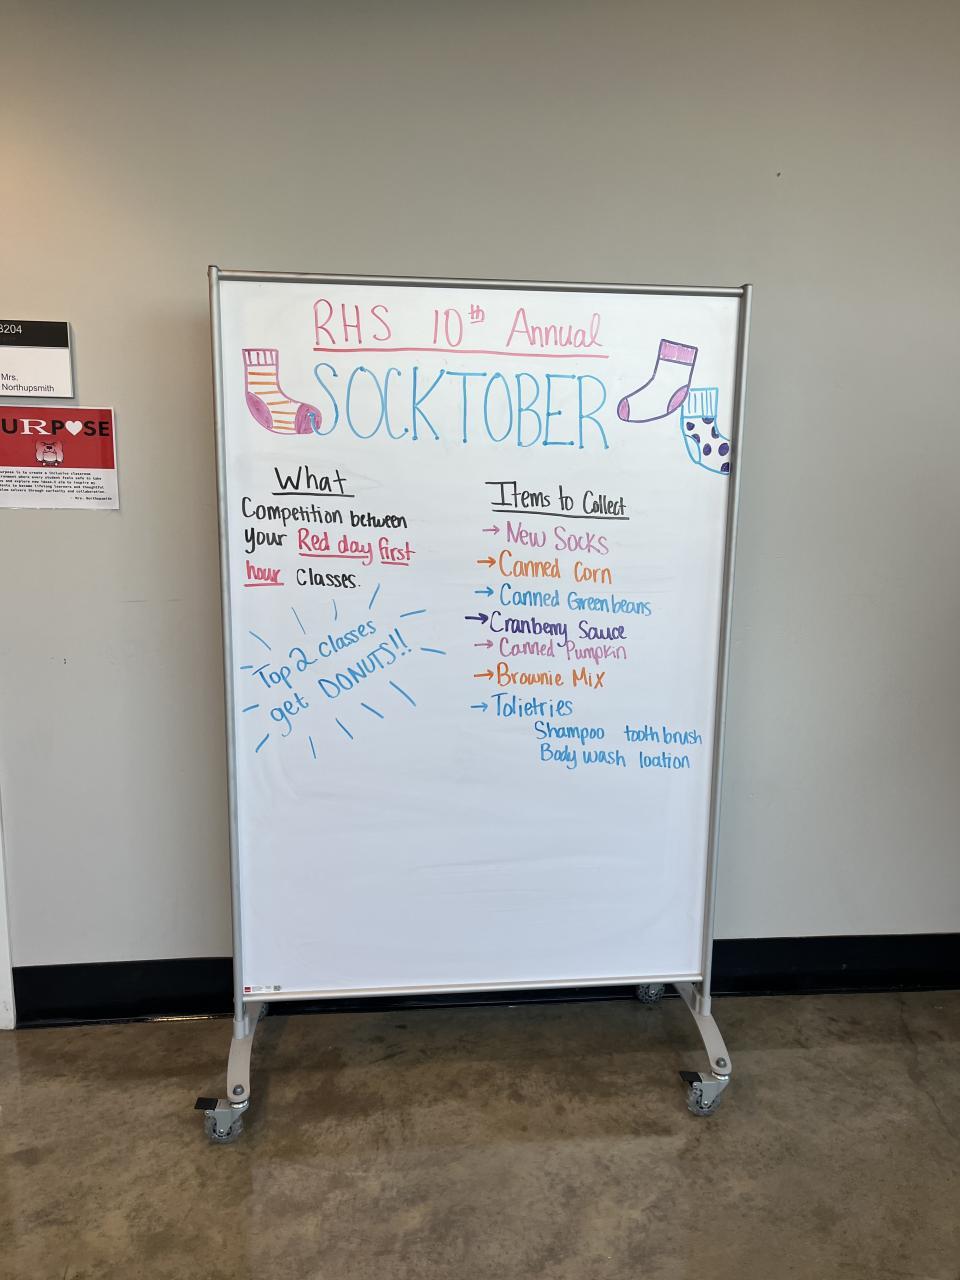 RHS 10th Annual
SOCKTOBER
What
Competition between
your Red day first
hour classes.
Top 2 classes
get DONUTS!!
Items to Collect
→ New Socks
→ Canned Corn
→ Canned Greenbeans
→ Cranberry Sauce
→ Canned Pumpkin
→ Brownie Mix
→ Tolietries
Shampoo toothbrush
Body wash loation
3204
Mrs.
Northupsmith
URPOSE
- Mrs. Northupsmith